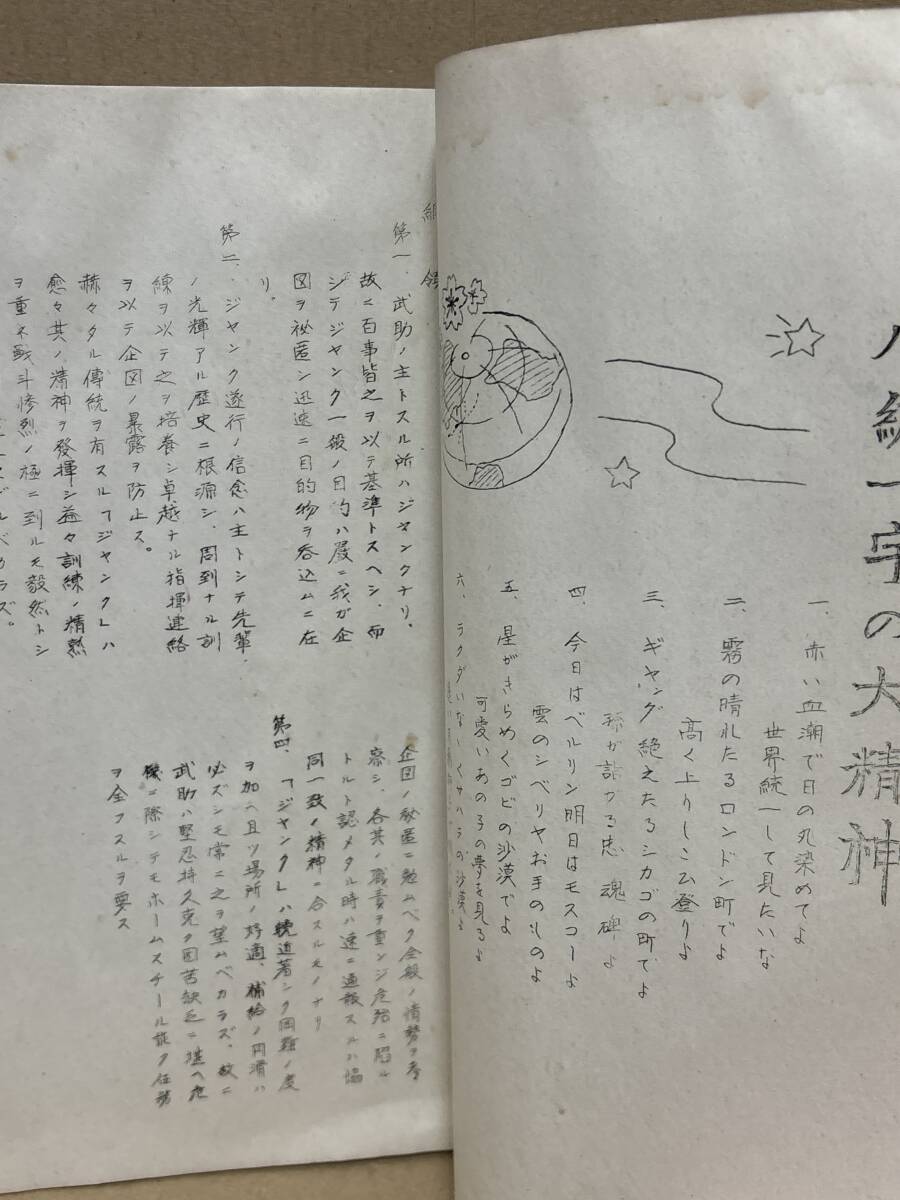 八紘一宇の大精神
一、赤い血潮で日の丸染めてよ
世界統一して見たいな
二、霧の晴れたるロンドン町でよ
高く上りしこひ登りよ
三、ギャング絶えたるシカゴの町でよ
孫が詣つる忠魂碑よ
四、今日はベルリン明日はモスコーよ
雲のシベリヤお手のものよ
五、星がきらめくゴビの沙漠でよ
可愛いあの子の夢を見るよ
六、ラクダいないくサハラの沙漠よ
綱領
第一、武助ノ主トスル所ハジャンクナリ。
故ニ百事皆之ヲ以テ基準トスヘシ、而
シテジャンク一般ノ目的ハ厳ニ我ガ企
図ヲ祕匿シ迅速ニ目的物ヲ呑込ムニ在
リ。
第二、ジャンク遂行ノ信念ハ主トシテ先輩
ノ光輝アル歴史ニ根源シ、周到ナル訓
練ヲ以テ之ヲ培養シ卓越ナル指揮連絡
ヲ以テ企図ノ暴露ヲ防止ス。
赫々タル傳統ヲ有スル「ジャンク」ハ
愈々其ノ精神ヲ發揮シ益々訓練ノ精熟
ヲ重ネ戦斗惨烈ノ極ニ到ルモ毅然トシ
ベカラズ。
企図ノ秘匿ニ勉ムベク全般ノ情勢ヲ考
察シ、各其ノ職責ヲ重ンジ危殆ニ陥ル
トルト認メタル時ハ速ニ通報スルハ協
同一致ノ精神ニ合スルモノナリ
第四、「ジャンク」ハ輓近著シク困難ノ度
ヲ加ヘ且ツ場所ノ好適、補給ノ円滑ハ
必ズシモ常ニ之ヲ望ムベカラズ、故ニ
武助ハ堅忍持久克ク困苦缺乏ニ堪ヘ危
機ニ際シテモホームスチール能ク任務
ヲ全フスルヲ要ス